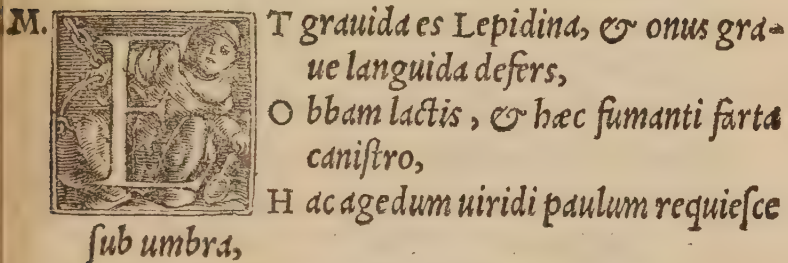 M. ET grauida es Lepidina, & onus gra-
ue languida defers,
O bbam lactis, & hæc fumanti farta
caniſtro,
H ac agedum uiridi paulum requieſce
ſub umbra,